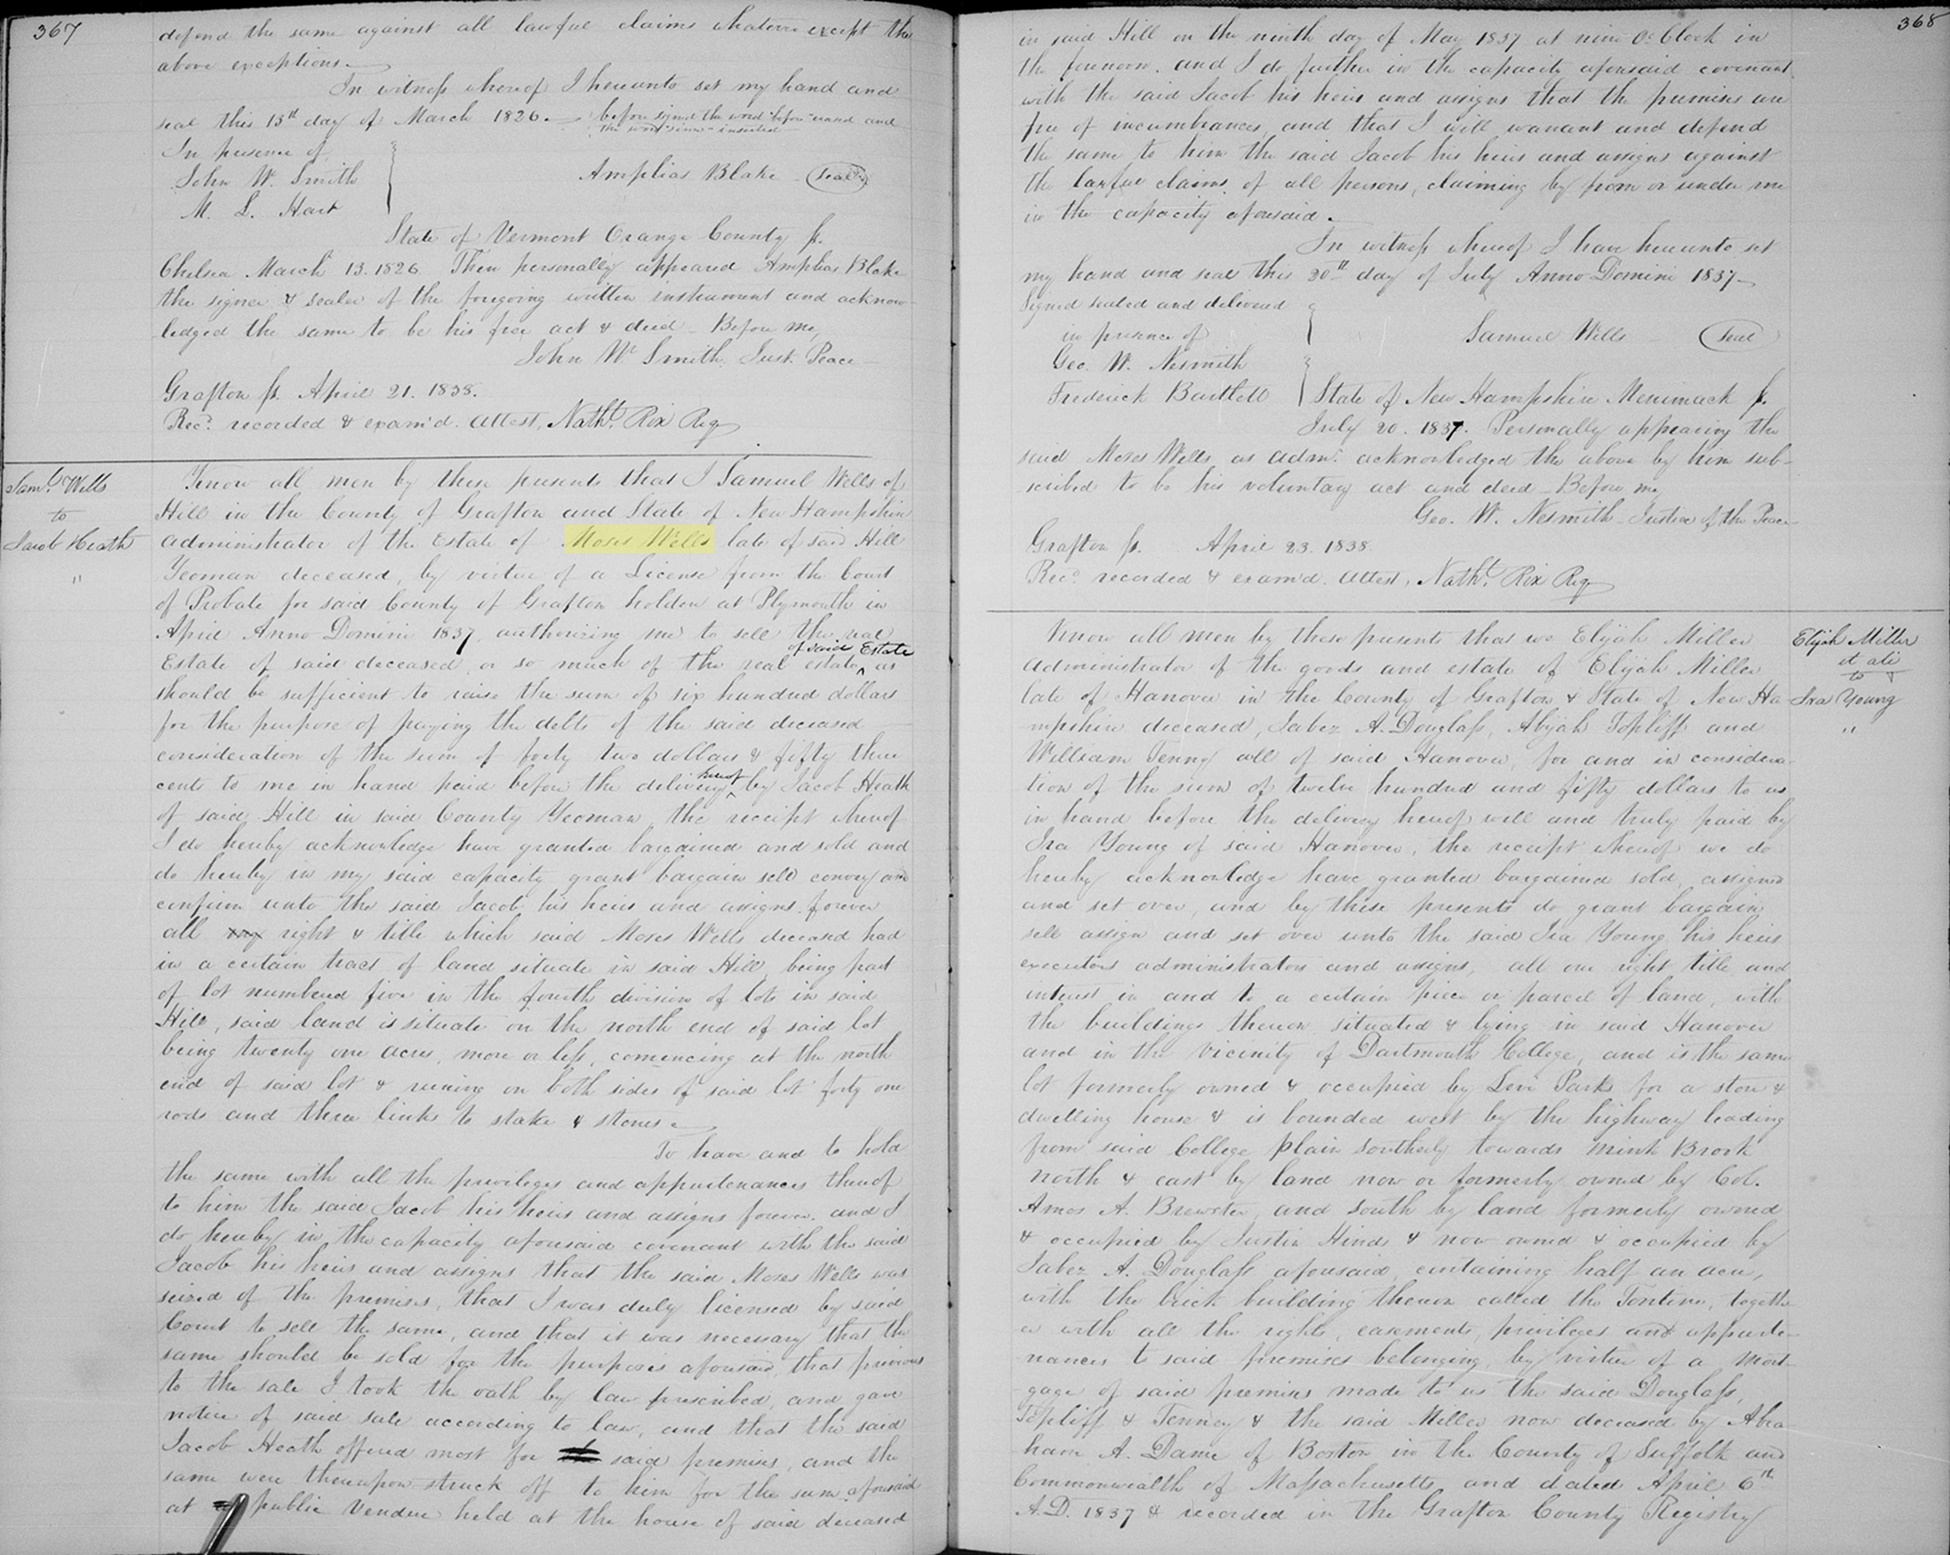 367
defend the same against all lawful claims whatever except the
above exceptions.
In witness whereof I hereunto set my hand and
seal this 13th day of March 1826. before signed the word "before" and
the word "since" inserted
In presence of
John W. Smith
M. L. Hart
Amplias Blake (seal)
State of Vermont Orange County ss.
Chelsea March 13. 1826. Then personally appeared Amplias Blake
the signer & sealer of the foregoing written instrument and acknow-
ledged the same to be his free act & deed - Before me,
John W. Smith. Just. Peace
Grafton ss. April 21. 1838.
Recd. recorded & exam'd. Attest, Nathl. Rix Reg
Saml. Wells
to
Jacob Heath
"
Know all men by these presents that I Samuel Wells of
Hill in the County of Grafton and State of New Hampshire
administrator of the Estate of Moses Wells late of said Hill
Yeoman deceased, by virtue of a License from the Court
of Probate for said County of Grafton holden at Plymouth in
April Anno Domini 1837, authorizing me to sell the real
Estate of said deceased or so much of the real estate of said Estate as
should be sufficient to raise the sum of six hundred dollars
for the purpose of paying the debts of the said deceased
consideration of the sum of forty two dollars & fifty three
cents to me in hand paid before the delivery hereof by Jacob Heath
of said Hill in said County Yeoman, the receipt whereof
I do hereby acknowledge have granted bargained and sold and
do hereby in my said capacity grant bargain sell convey and
confirm unto the said Jacob his heirs and assigns forever
all my right & title which said Moses Wells deceased had
in a certain tract of land situate in said Hill, being part
of lot numbered five in the fourth division of lots in said
Hill, said land is situate on the north end of said lot
being twenty one acres, more or less, comencing at the north
end of said lot & runing on both sides of said lot forty one
rods and three links to stake & stones.
To have and to hold
the same with all the privileges and appurtenances thereof
to him the said Jacob his heirs and assigns forever. and I
do hereby in the capacity aforesaid covenant with the said
Jacob his heirs and assigns that the said Moses Wells was
seized of the premises, that I was duly licensed by said
Court to sell the same, and that it was necessary that the
same should be sold for the purposes aforesaid, that previous
to the sale I took the oath by law prescribed, and gave
notice of said sale according to law, and that the said
Jacob Heath offered most for said premises, and the
same were thereupon struck off to him for the sum aforesaid
at public Vendue held at the house of said deceased
368
in said Hill on the ninth day of May 1837 at nine O. Clock in
the forenoon. and I do further in the capacity aforesaid covenant
with the said Jacob his heirs and assigns that the premises are
free of incumbrances, and that I will warrant and defend
the same to him the said Jacob his heirs and assigns against
the lawful claims of all persons, claiming by from or under me
in the capacity aforesaid.
In witness whereof I have hereunto set
my hand and seal this 20th day of July Anno Domini 1837.
Signed sealed and delivered
in presence of
Geo. W. Nesmith
Frederick Bartlett
Samuel Wells (seal)
State of New Hampshire Merrimack ss.
July 20. 1837. Personally appearing the
said Moses Wells, as admr. acknowledged the above by him sub-
scribed to be his voluntary act and deed - Before me,
Geo. W. Nesmith Justice of the Peace
Grafton ss. April 23. 1838.
Recd. recorded & exam'd. Attest, Nathl. Rix Reg
Elijah Miller
et ali
to
Ira Young
"
Know all men by these presents that we Elijah Miller
administrator of the goods and estate of Elijah Miller
late of Hanover in the County of Grafton & State of New Ha-
mpshire deceased, Jabez A. Douglass, Abijah Topliff and
William Tenny all of said Hanover, for and in considera-
tion of the sum of twelve hundred and fifty dollars to us
in hand before the delivery hereof well and truly paid by
Ira Young of said Hanover, the receipt whereof we do
hereby acknowledge have granted bargained sold, assigned
and set over, and by these presents do grant bargain
sell assign and set over unto the said Ira Young his heirs
executors administrators and assigns, all our right title and
interest in and to a certain piece or parcel of land, with
the buildings thereon situated & lying in said Hanover
and in the vicinity of Dartmouth College, and is the same
lot formerly owned & occupied by Levi Parks for a store &
dwelling house & is bounded west by the highway leading
from said College plain Southerly towards Mink Brook
north & east by land now or formerly owned by Col.
Amos A. Brewster, and south by land formerly owned
& occupied by Justin Hinds & now owned & occupied by
Jabez A. Douglass aforesaid, containing half an acre,
with the brick building thereon called the Tontine, togethe
er with all the rights, easements, privileges and appurte-
nances to said premises belonging, by virtue of a Mort-
gage of said premises made to us the said Douglass,
Topliff & Tenney & the said Miller now deceased by Abra-
ham A. Dame of Boston in the County of Suffolk and
Commonwealth of Massachusetts and dated April 6th
A.D. 1837 & recorded in the Grafton County Registry